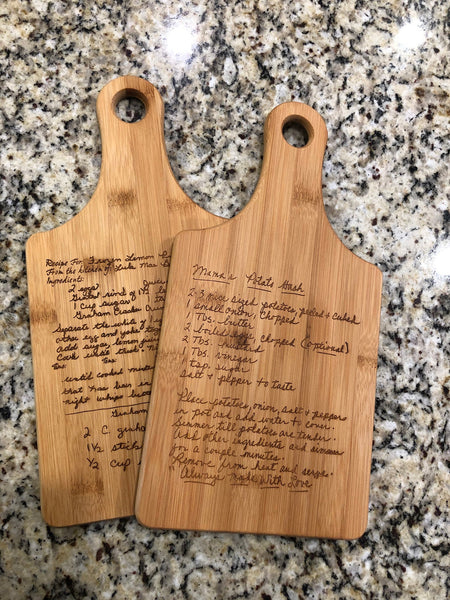 Recipe For: Frozen Lemon
From the kitchen of Lula Mae
Ingredients:
2 eggs Juice
Grated rind of 1/2
1 cup sugar
Graham Cracker Cru
Separate the whites
other egg and yolks
add sugar, lemon juice
Cook until thick.
until cooked mixture
that has been in
night whips
Graham
2 C graha
1 1/2 stick
1/2 cup
Mama's Potato Hash
2-3 nice sized potatoes, peeled + cubed
1 small onion, chopped
1 Tbs. butter
2 boiled eggs, chopped (optional)
2 Tbs. mustard
1 Tbs. vinegar
1 tsp. sugar
Salt + pepper to taste
Place potatoes, onion, salt + peppers
in pot add and water to cover.
Simmer till potatoes are tender.
Add other ingredients and simmer
for a couple minutes.
Remove from heat and serve.
Always Made With Love